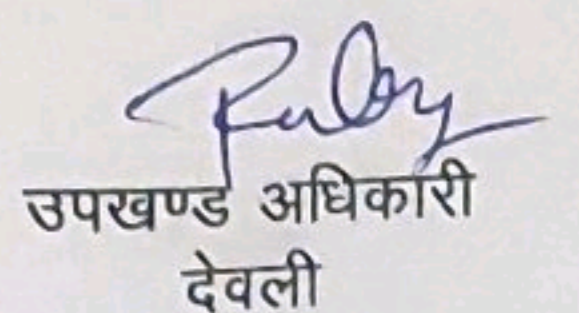 Ruby
उपखण्ड अधिकारी
देवली